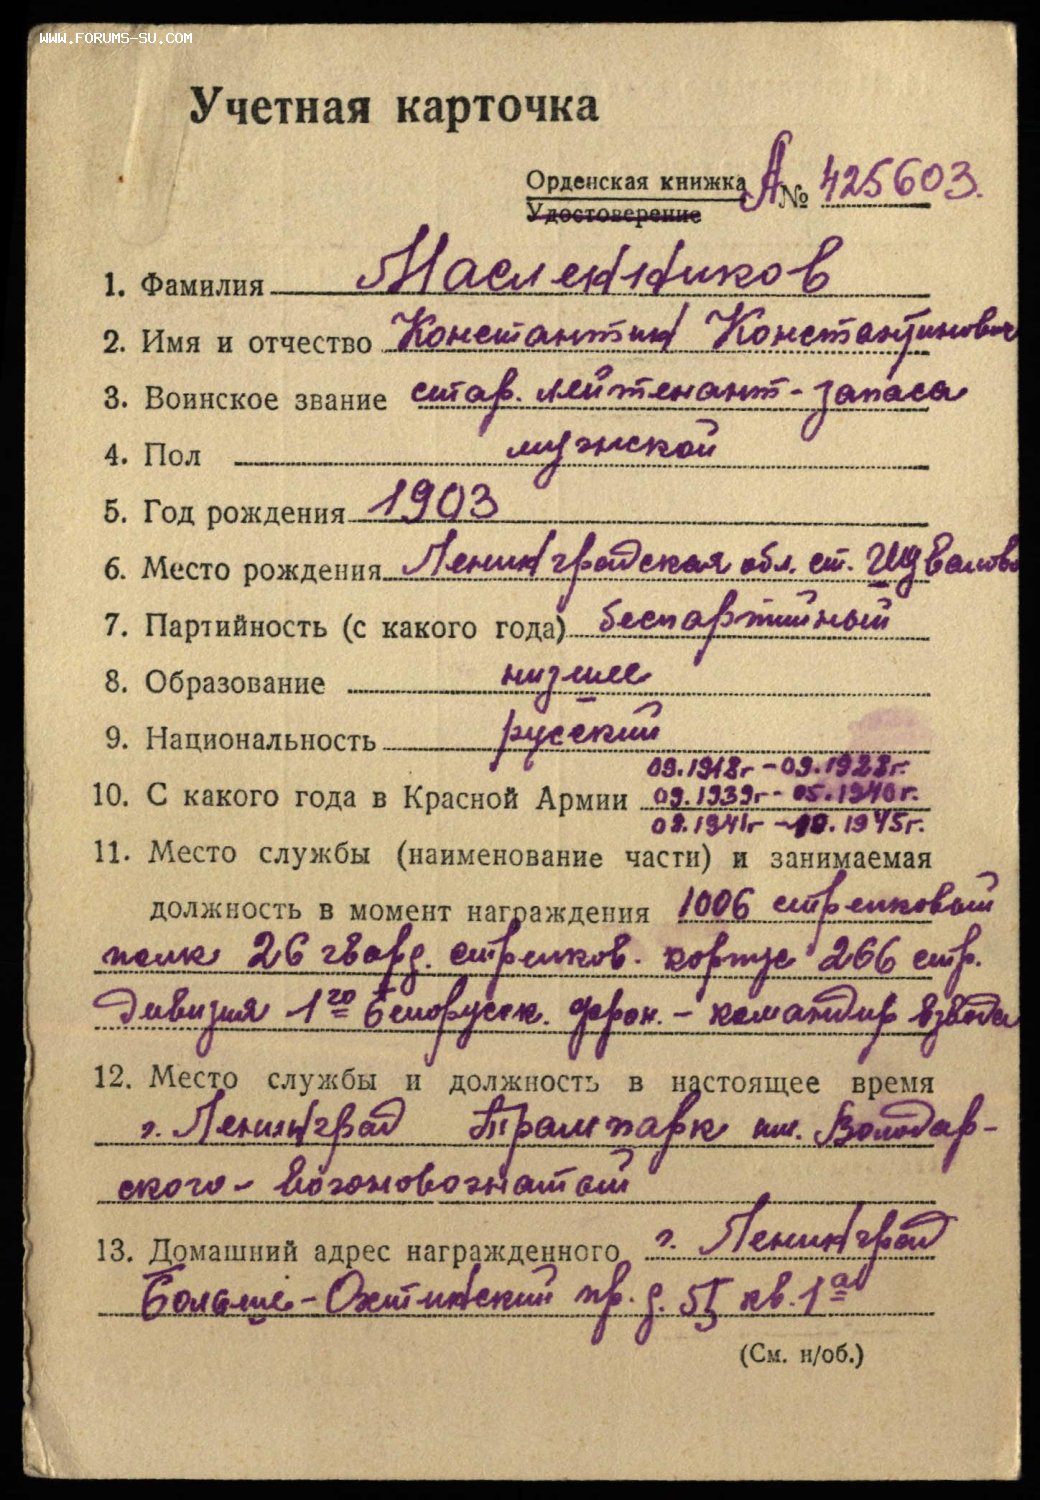 WWW.FORUMS-SU.COM
Учетная карточка
Орденская книжка А № 425603.
Удостоверение
1. Фамилия Масленников
2. Имя и отчество Константин Константинович
3. Воинское звание стар. лейтенант - запаса
4. Пол мужской
5. Год рождения 1903
6. Место рождения Ленинградская обл. ст. Шувалово
7. Партийность (с какого года) беспартийный
8. Образование низшее
9. Национальность русский
09.1918г - 09.1928г.
10. С какого года в Красной Армии 09.1939г - 05.1940г.
08.1941г - 10.1945г.
11. Место службы (наименование части) и занимаемая
должность в момент награждения 1006 стрелковый
полк 26 гвард. стрелков. корпус 266 стр.
дивизия 1го Белорусск. фрон. - командир взвода
12. Место службы и должность в настоящее время
г. Ленинград Трампарк им. Володар-
ского - вагоновожатый
13. Домашний адрес награжденного г. Ленинград
Больше-Охтинский пр. д. 55 кв. 1а
(См. н/об.)